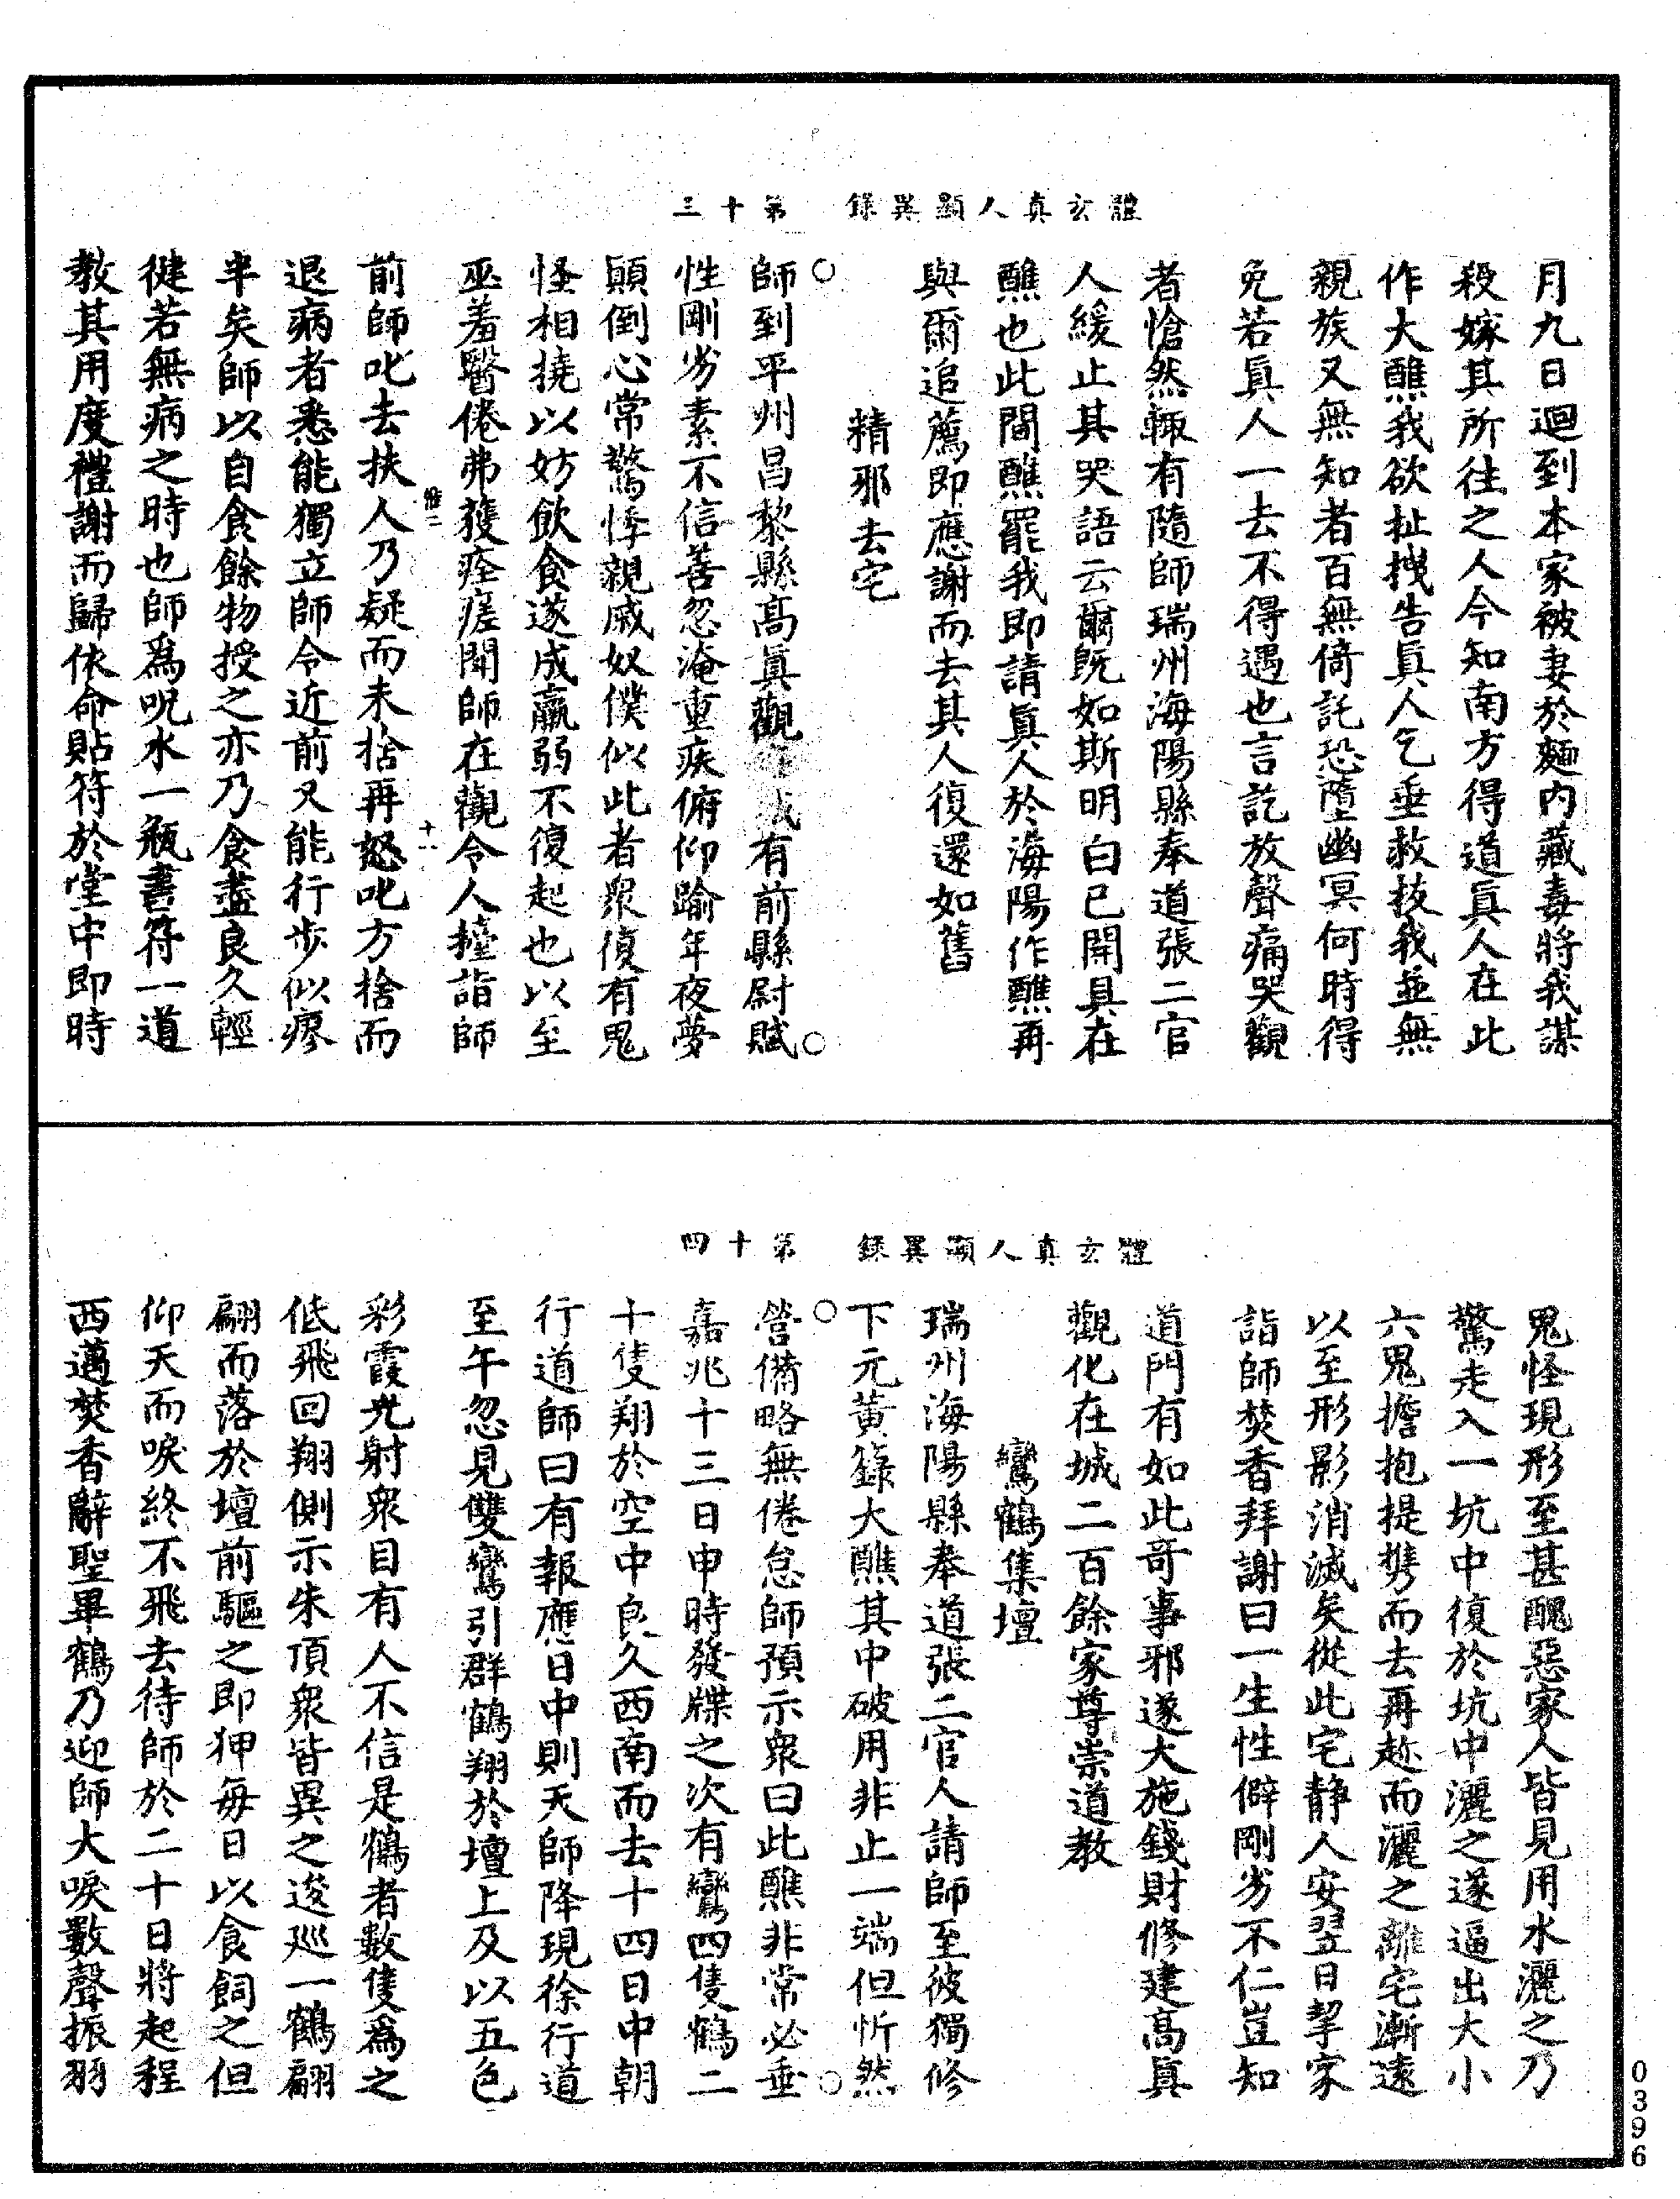 體玄真人顯異錄　第十三
月九日迴到本家被妻於麵內藏毒將我謀
殺嫁其所往之人今知南方得道眞人在此
作大醮我欲扯拽告眞人乞垂救拔我並無
親族又無知者百無倚託恐墮幽冥何時得
免若眞人一去不得遇也言訖放聲痛哭觀
者愴然輙有隨師瑞州海陽縣奉道張二官
人緩止其哭語云爾旣如斯明白已開具在
醮也此間醮罷我即請眞人於海陽作醮再
與爾追薦即應謝而去其人復還如舊
精邪去宅
師到平州昌黎縣髙眞觀城有前縣尉賦
性剛劣素不信善忽淹重疾俯仰踰年夜夢
顚倒心常驚悸親戚奴僕似此者衆復有鬼
怪相撓以妨飲食遂成羸弱不復起也以至
巫羞醫倦弗獲痊瘥聞師在觀令人擡詣師
惟二　十一
前師叱去扶人乃疑而未捨再怒叱方捨而
退病者悉能獨立師令近前又能行步似瘳
半矣師以自食餘物授之亦乃食盡良久輕
健若無病之時也師爲呪水一瓶書符一道
教其用度禮謝而歸依命貼符於堂中即時
體玄真人顯異錄　第十四
鬼怪現形至甚醜惡家人皆見用水灑之乃
驚走入一坑中復於坑中灑之遂逼出大小
六鬼擔抱提携而去再趂而灑之離宅漸遠
以至形影消滅矣從此宅静人安翌日挈家
詣師焚香拜謝曰一生性僻剛劣不仁豈知
道門有如此竒事邪遂大施錢財修建髙眞
觀化在城二百餘家尊崇道教
鸞鶴集壇
瑞州海陽縣奉道張二官人請師至彼獨修
下元黃籙大醮其中破用非止一端但忻然
營備略無倦怠師預示衆曰此醮非常必垂
嘉兆十三日申時發牒之次有鸞四隻鶴二
十隻翔於空中良久西南而去十四日中朝
行道師曰有報應日中則天師降現徐行道
至午忽見雙鸞引群鶴翔於壇上及以五色
彩霞光射衆目有人不信是鶴者數隻爲之
低飛回翔側示朱頂衆皆異之逡巡一鶴翩
翩而落於壇前驅之即狎每日以食飼之但
仰天而唳終不飛去待師於二十日將起程
西邁焚香辭聖畢鶴乃迎師大唳數聲振羽
0396